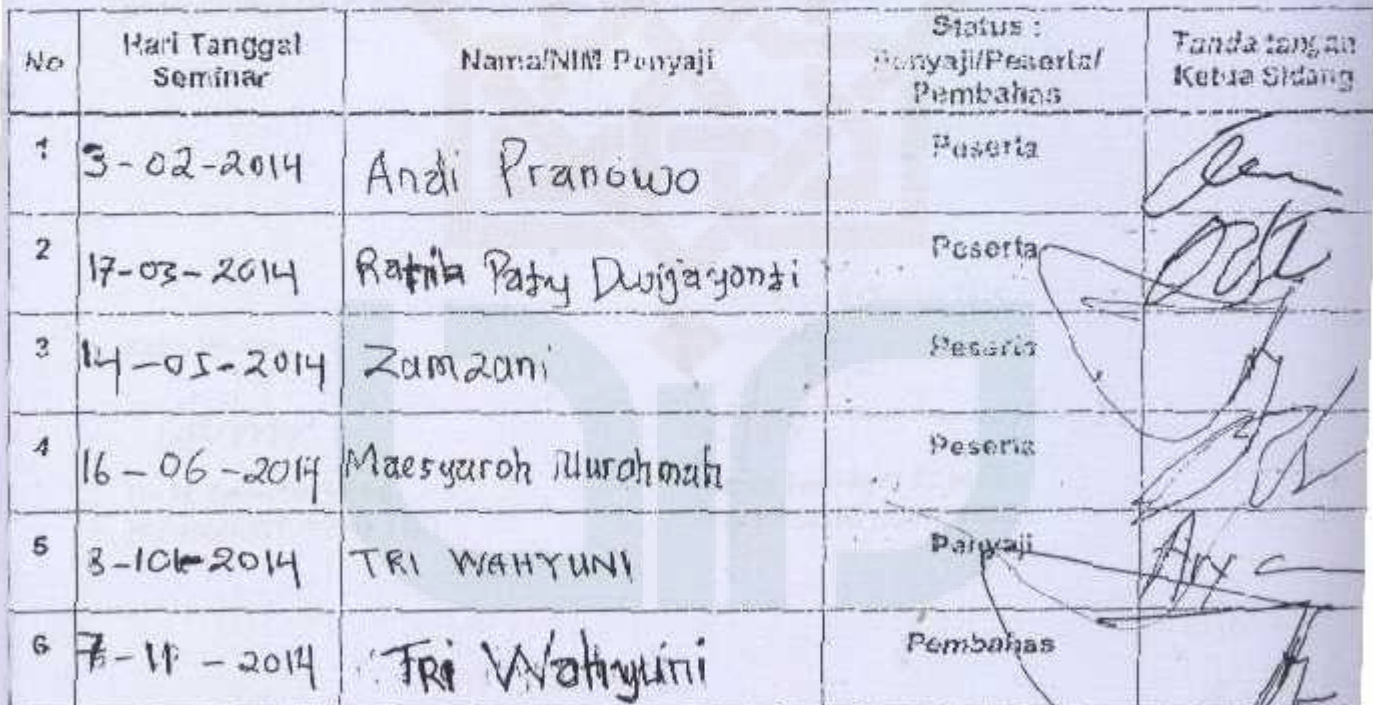 No Hari Tanggal Seminar Nama/NIM Penyaji Status : Penyaji/Peserta/ Pembahas Tanda tangan Ketua Sidang
1 3-02-2014 Andi Pranowo Peserta
2 17-03-2014 Paty Peserta
3 14-05-2014 Zamzani Peserta
4 16-06-2014 Maesyaroh Nurohmah Peserta
5 2014 TRI WAHYUNI Penyaji
6 7-11-2014 TRI Wahyuni Pembahas